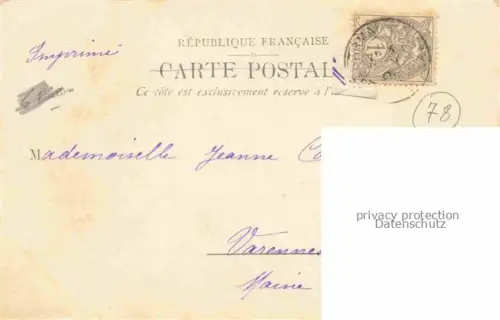 RÉPUBLIQUE FRANÇAISE
Imprimé
CARTE POSTAL
Ce côté est exclusivement réservé à l'
78
Mademoiselle Jeanne
privacy protection
Datenschutz
Varennes
Maine